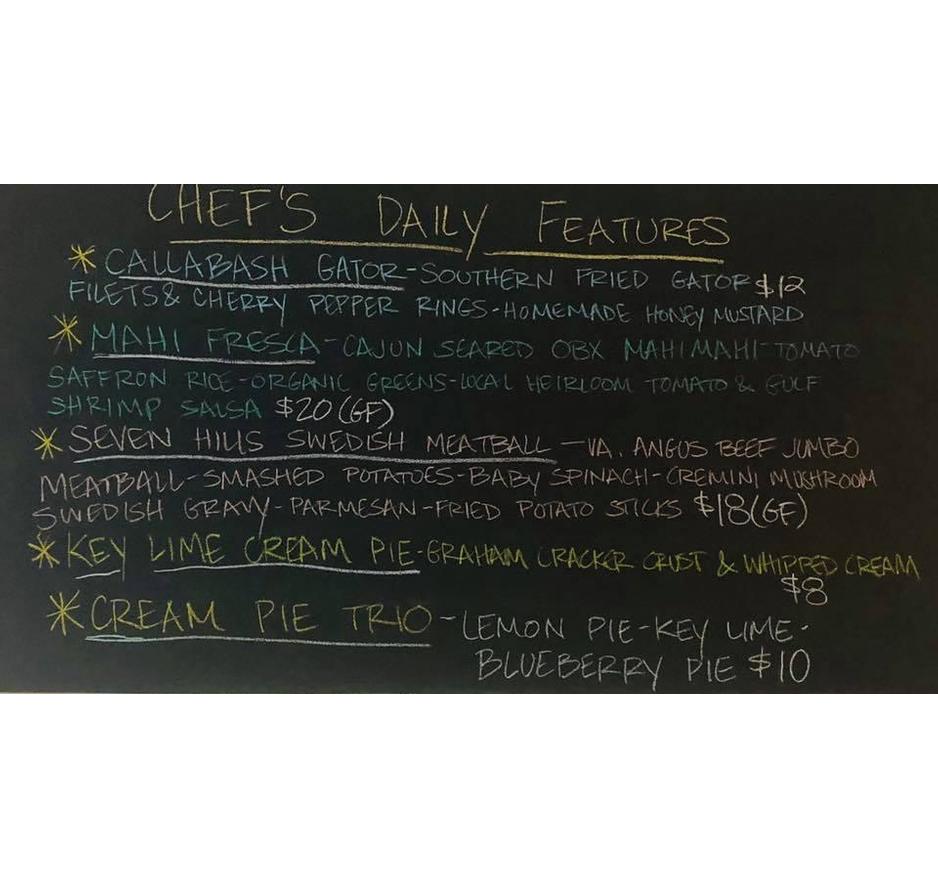 CHEF'S DAILY FEATURES
* CALLABASH GATOR-SOUTHERN FRIED GATOR $12
FILETS & CHERRY PEPPER RINGS-HOMEMADE HONEY MUSTARD
* MAHI FRESCA-CAJUN SEARED OBX MAHI MAHI-TOMATO
SAFFRON RICE-ORGANIC GREENS-LOCAL HEIRLOOM TOMATO & GULF
SHRIMP SALSA $20 (GF)
* SEVEN HILLS SWEDISH MEATBALL - VA. ANGUS BEEF JUMBO
MEATBALL-SMASHED POTATOES-BABY SPINACH-CREMINI MUSHROOM
SWEDISH GRAVY-PARMESAN-FRIED POTATO STICKS $18 (GF)
* KEY LIME CREAM PIE-GRAHAM CRACKER CRUST & WHIPPED CREAM
$8
* CREAM PIE TRIO-LEMON PIE-KEY LIME-
BLUEBERRY PIE $10